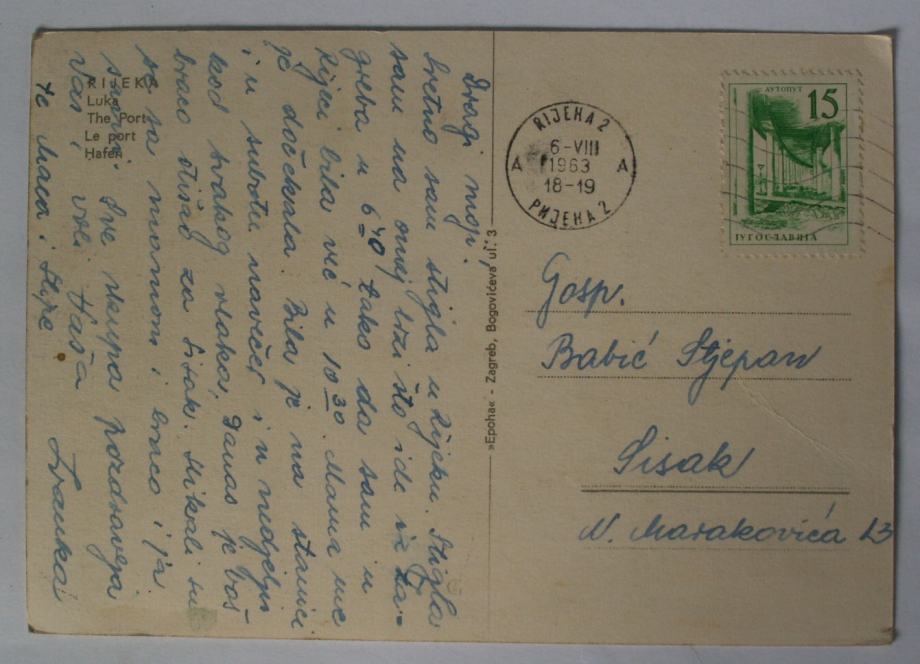 RIJEKA
Luka
The Port
Le port
Hafen
Dragi moji,
Sretno sam stigla u Rijeku. Stigla
sam na onaj brzi što ide iz Za-
greba u 6 40 tako da sam u
Rijeci bila već u 10 30. Mama me
je dočekala. Bila je na stanici
i u subotu navečer i u nedjelju
kod svakog vlaka. Danas je baš
braco otišao za Sisak. su
se sa mamom i braco i ja
Sve skupa pozdravlja
Vas i voli Vaša
te Maca i Stipe
»Epoha« - Zagreb, Bogovićeva ul. 3
RIJEKA 2
6-VIII
1963
18-19
A A
РИЈЕКА 2
АУТОПУТ
15
ЈУГОСЛАВИЈА
Gosp.
Babić Stjepan
Sisak
N. Marakovića 13